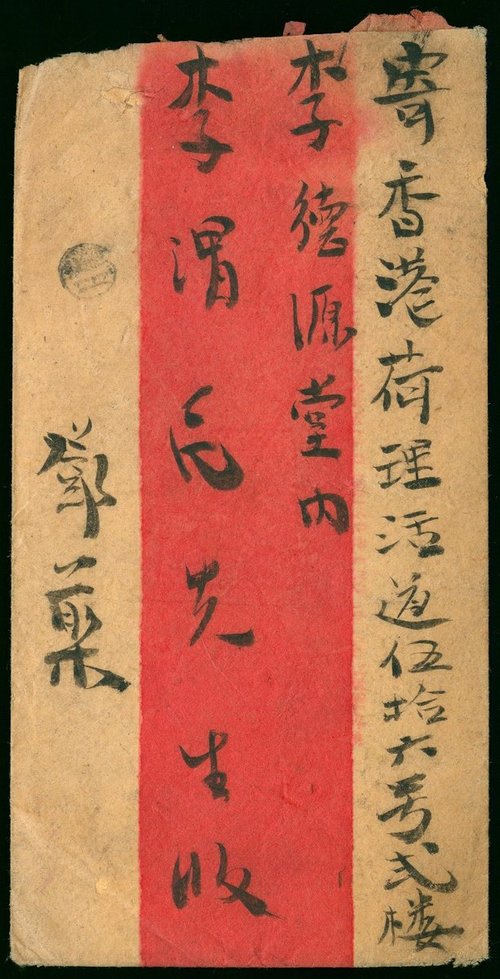 寄香港荷理活道伍拾六号弍楼
李德源堂内
李渭氏先生收
鄧葉